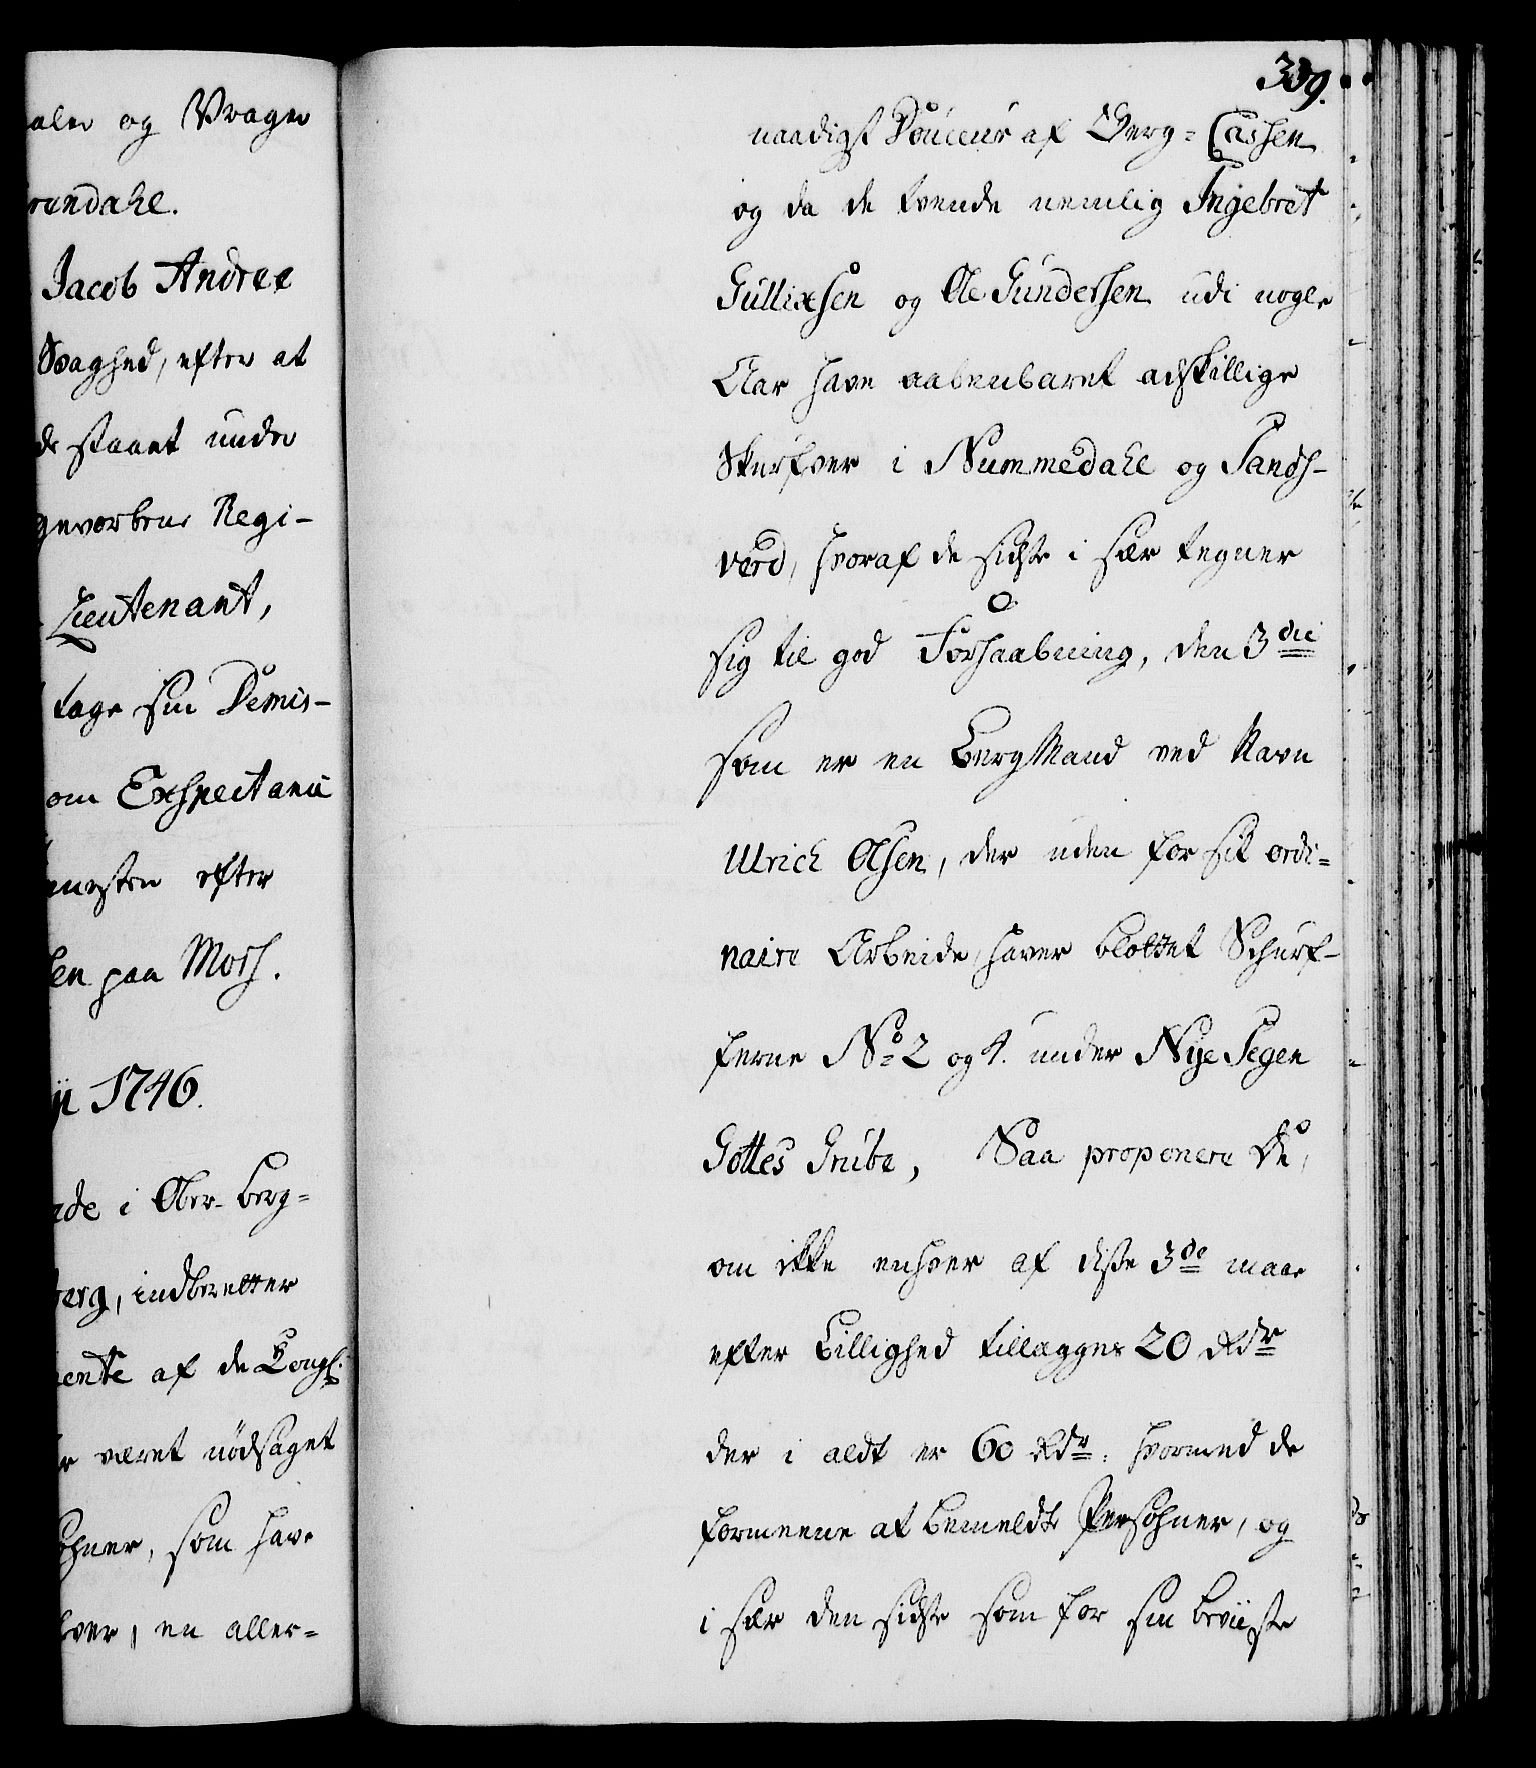 aler og Vrager
rundahl.
Jacob Andree
Svaghed, efter at
de staaet under
gevorbene Regi-
Lieutenant,
tage sin Demis-
om Exspectance
nesten efter
en paa Mors.
ii 1746.
ade i Ober-Berg-
berg, indberetter
ente af de Kongl.
r været nödsaget
ohner, som have
ver, en aller-
339.
naadigst Douceur af Berg-Cassen
og da de tvende nemlig Ingebret
Gullixsen og Ole Gundersen udi nogle
Aar have aabenbaret adskillige
Skurfver i Nummedahl og Sands-
verd, hvoraf de sidste i sær tegner
sig til god Forhaabning, den 3die
som er en BergMand ved Navn
Ulrich Olsen, der uden for sit ordi-
naire Arbeide, haver blottet Schurf-
ferne No 2 og 4. under Nye Segen
Gottes Grube, Saa proponere De,
om ikke enhver af disse 3de maae
efter Billighed tillægges 20 Rdr
der i aldt er 60 Rdr. hvormed de
formeene at bemeldte Persohner, og
i sær den sidste som for sin beviiste